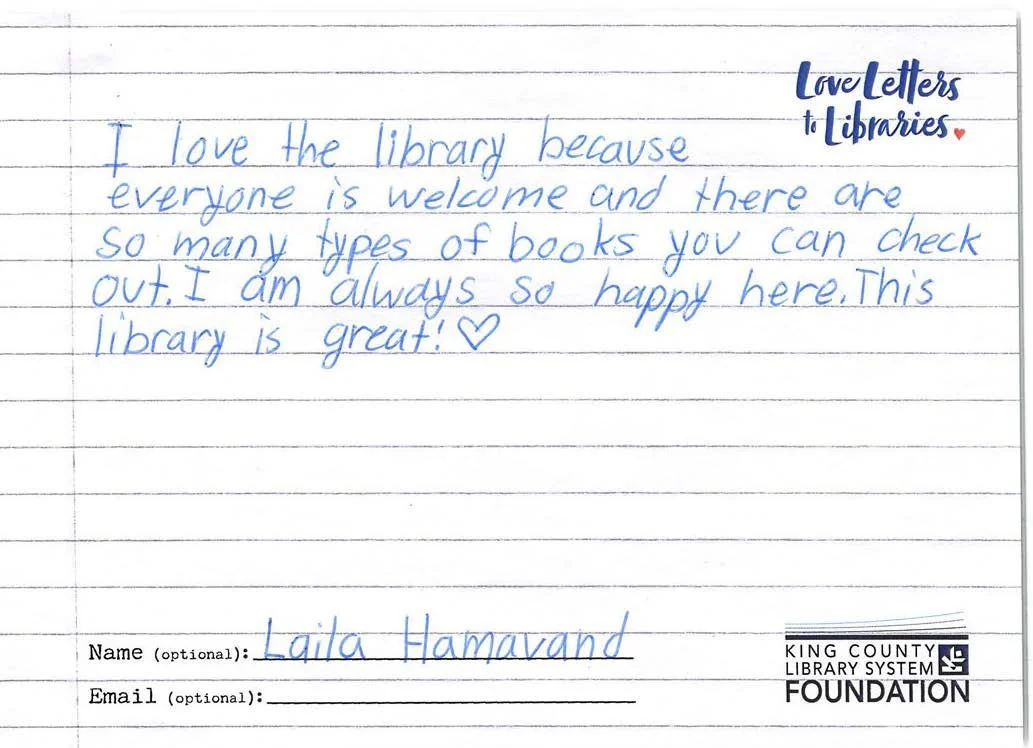 Love Letters
to Libraries
I love the library because
everyone is welcome and there are
so many types of books you can check
out. I am always so happy here. This
library is great! ♡
Name (optional): Laila Hamavand
Email (optional):
KING COUNTY
LIBRARY SYSTEM
FOUNDATION